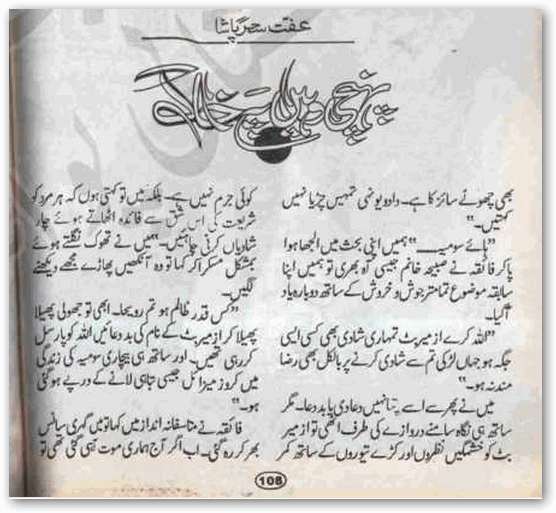 عفت سحر پاشا
پہنچی وہیں پہ خاک
بھی چھوٹے سائز کا ہے۔ دادو یونہی تمہیں چڑیا نہیں
کہتیں۔"
"ہائے سومیہ۔۔۔" ہمیں اپنی بحث میں الجھا ہوا
پا کر فائقہ نے صبیحہ خانم جیسی آہ بھری تو ہمیں اپنا
سابقہ موضوع تمامتر جوش و خروش کے ساتھ دوبارہ یاد
آگیا۔
"اللہ کرے ازمیر بٹ تمہاری شادی بھی کسی ایسی
جگہ ہو جہاں لڑکی تم سے شادی کرنے پر بالکل بھی رضا
مند نہ ہو۔"
میں نے پھر سے اسے پتا نہیں دعا دی یا بددعا۔ مگر
ساتھ ہی نگاہ سامنے دروازے کی طرف اٹھی تو ازمیر
بٹ کو خشمگیں نظروں اور کڑے تیوروں کے ساتھ کمر
کوئی جرم نہیں ہے۔ بلکہ میں تو کہتی ہوں کہ ہر مرد کو
شریعت کی اس شق سے فائدہ اٹھاتے ہوئے چار
شادیاں کرنی چاہئیں۔" میں نے تھوک نگلتے ہوئے
بمشکل مسکرا کر کہا تو وہ آنکھیں پھاڑے مجھے دیکھنے
لگیں۔
"کس قدر ظالم ہو تم رویحا۔ ابھی تو جھولی پھیلا
پھیلا کر ازمیر بٹ کے نام کی بددعائیں اللہ کو پارسل
کر رہی تھیں۔ اور ساتھ ہی بیچاری سومیہ کی زندگی
میں کروز میزائل جیسی تباہی لانے کے درپے ہو گئی
ہو۔"
فائقہ نے متاسفانہ انداز میں کہا تو میں گہری سانس
بھر کر رہ گئی۔ اب اگر آج ہماری موت آہی گئی تھی تو
108